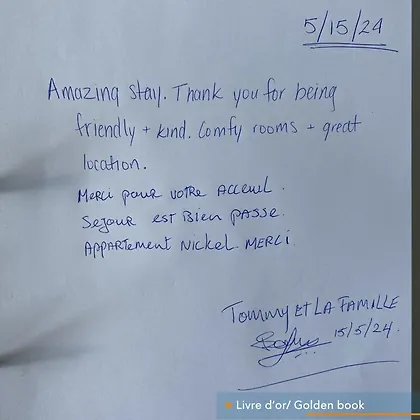 5/15/24
Amazing stay. Thank you for being
friendly + kind. Comfy rooms + great
location.
Merci pour votre Acceuil.
Sejour est Bien passe.
Appartement Nickel. Merci
Tommy et LA FAMILLE
15/5/24.
Livre d'or/ Golden book